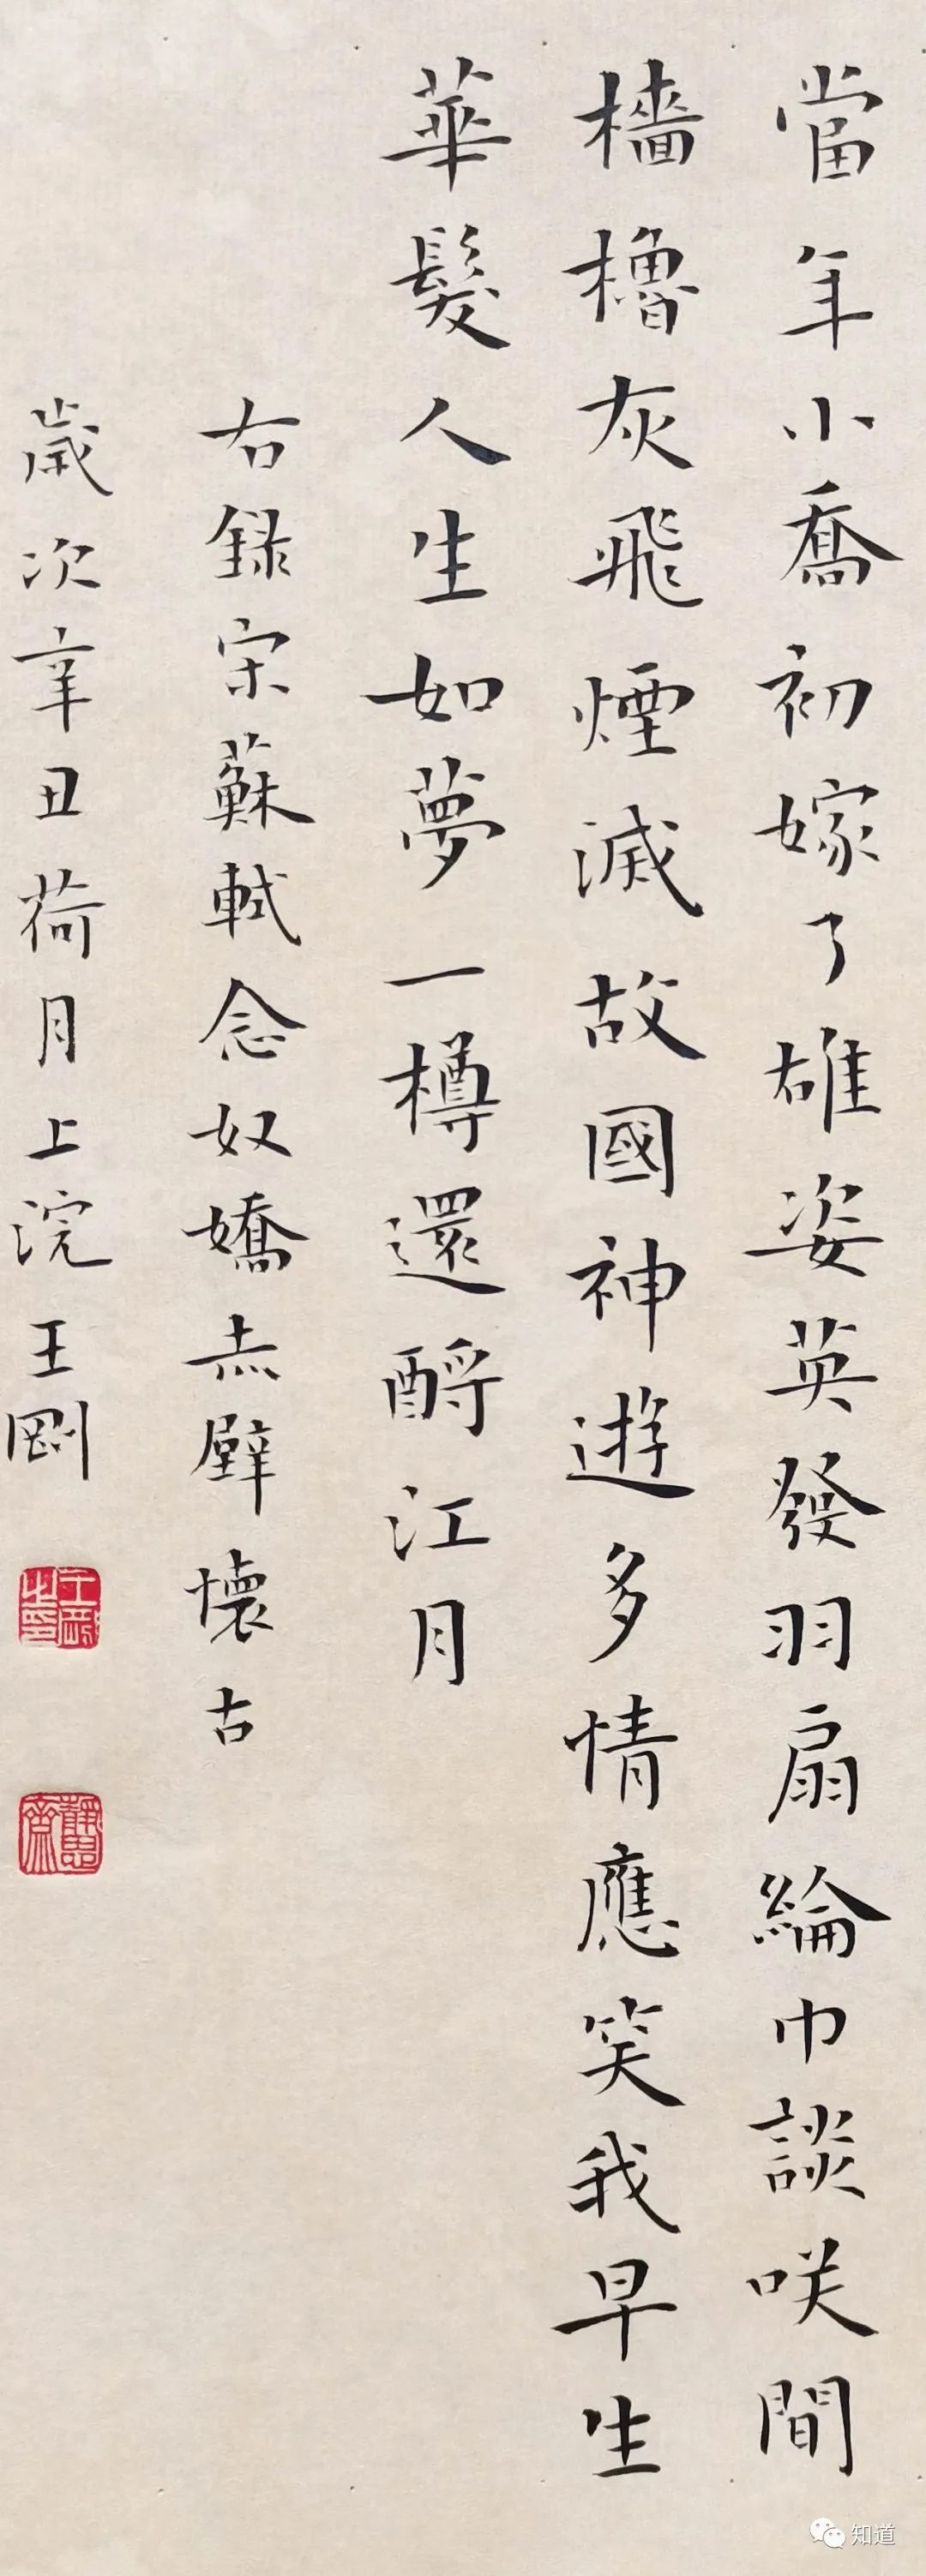 當年小喬初嫁了雄姿英發羽扇綸巾談咲間
檣櫓灰飛煙滅故國神遊多情應笑我早生
華髮人生如夢一樽還酹江月
右錄宋蘇軾念奴嬌赤壁懷古
歲次辛丑荷月上浣王剛
王剛之印
靜思齋
知道